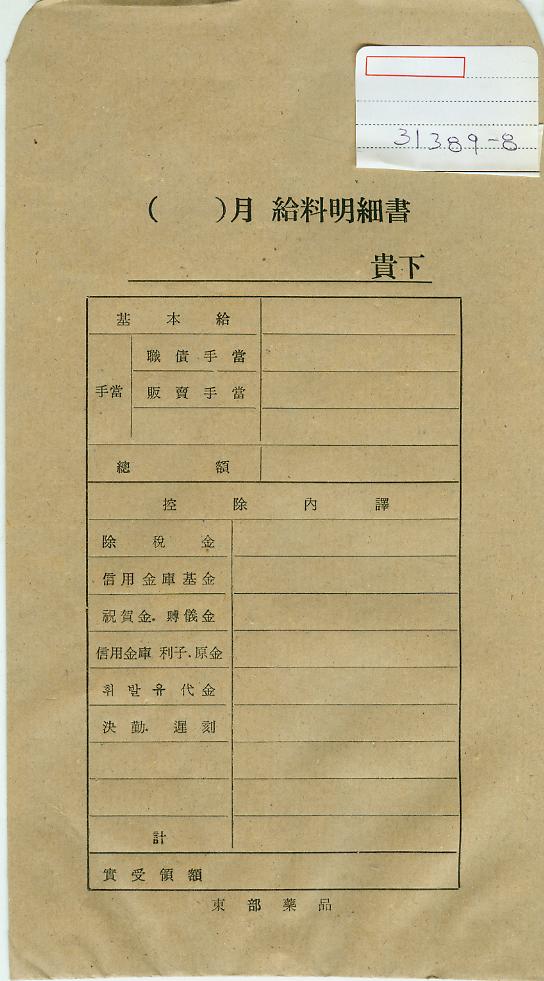 31389-8
( )月 給料明細書
貴下
基本給
手當
職債手當
販賣手當
總額
控除內譯
除稅金
信用金庫基金
祝賀金. 賻儀金
信用金庫 利子.原金
휘발유代金
決勤. 遲刻
計
實受領額
東部藥品